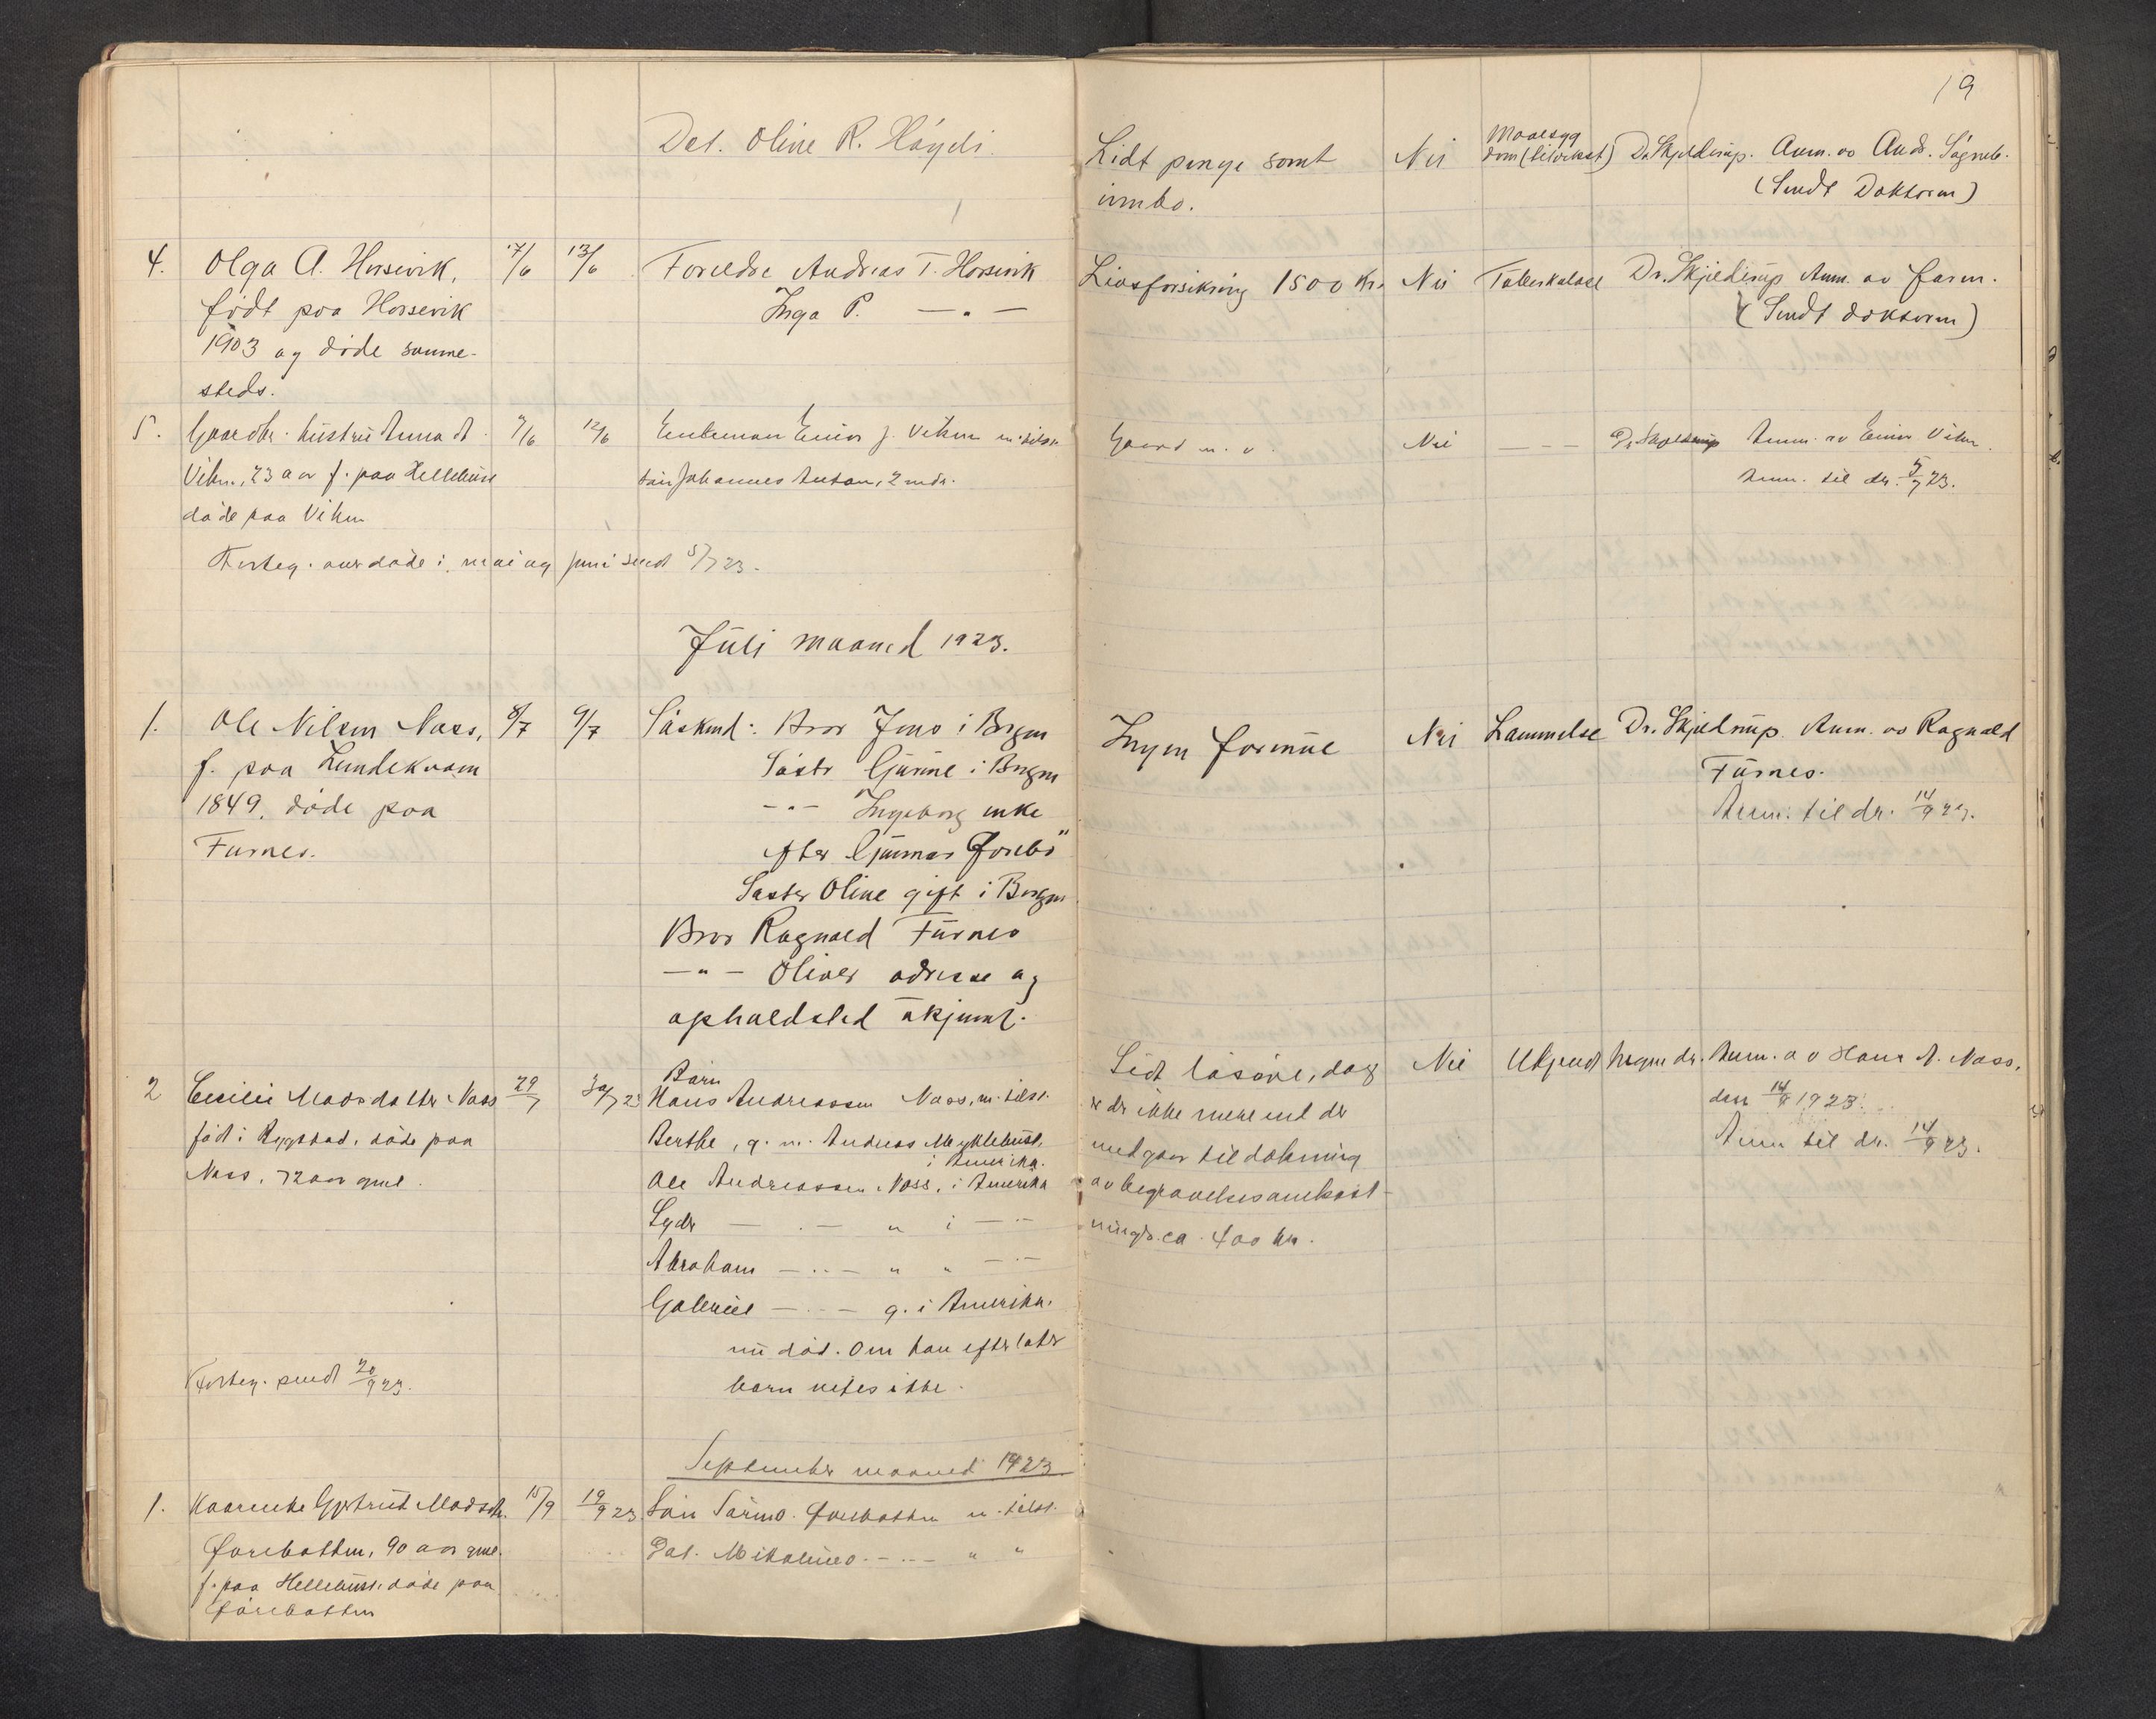 19
Dat. Oline R. Høydi.
Lidt penge samt
innbo.
Nei
Mavesyg
dom
Dr. Skjelderup.
Anm. av Andr.
(Sendt Doktoren)
4.
Olga A. Horsevik,
født paa Horsevik
1903 og døde samme-
steds.
17/6
13/6
Foreldre Andreas T. Horsevik
Inga P. — " —
Livsforsikring 1500 Kr.
Nei
Tuberkulose
Dr. Skjelderup Anm. av farm.
(Sendt doktoren)
5.
Gaardbr. hustru Anna A.
Viken, 23 aar f. paa Hellebust
døde paa Viken
7/6
12/6
Enkeman Einar J. Viken m. tilst.
søn Johannes Anton, 2 mdr.
Gaard m. v.
Nei
— —
Dr. Skjelderup
Anm. av Einar Viken.
Anm. til dr. 5/7 23.
Forteg. over døde i mai og juni sendt 5/7 23.
Juli maaned 1923.
1.
Ole Nilsen Nass,
f. paa Lundekvam
1849, døde paa
Furnes.
8/7
9/7
Søskend: Bror Jens i Bergen
Søster Gurine i Bergen
— " — Ingeborg enke
efter GunnarFørebø
Søster Oline gift i Bergen
Bror Ragnald Furnes
— " — Oliver adresse og
opholdsted ukjennt.
Ingen formue
Nei
Lammelse
Dr. Skjelderup. Anm. av Ragnald
Furnes.
Anm. til dr. 14/9 23.
2
Cecilie Madsdatter Nass
født i Rygstad, døde paa
Nass, 72 aar gml.
29/7
30/7 23
Barn
Hans Andreassen Nass, m. tilst.
Berthe, g. m. Andreas Myklebust,
i Amerika.
Ole Andreassen Nass, i Amerika
Lydr — . — " i — . —
Abraham — .. — " " — . —
Gabriel — .. — g. i Amerika.
nu død. Om han efterlater
barn vites ikke.
Lidt løsøre, dog
er der ikke mere end der
medgaar til dækning
av begravelsesomkost-
ninger ca. 400 kr.
Nei
Ukjendt
Ingen dr.
Anm. av Hans A. Nass,
den 14/9 1923.
Anm til dr. 14/9 23.
Forteg. sendt 20/9 23.
September maaned 1923
1.
Kaarenke Gjertrud Madsdtr.
Førebotten, 90 aar gml.
f. paa Hellebust, døde paa
Førebotten
15/9
19/9 23
Søn Førebotten m. tilst.
Dat. — .. — " "